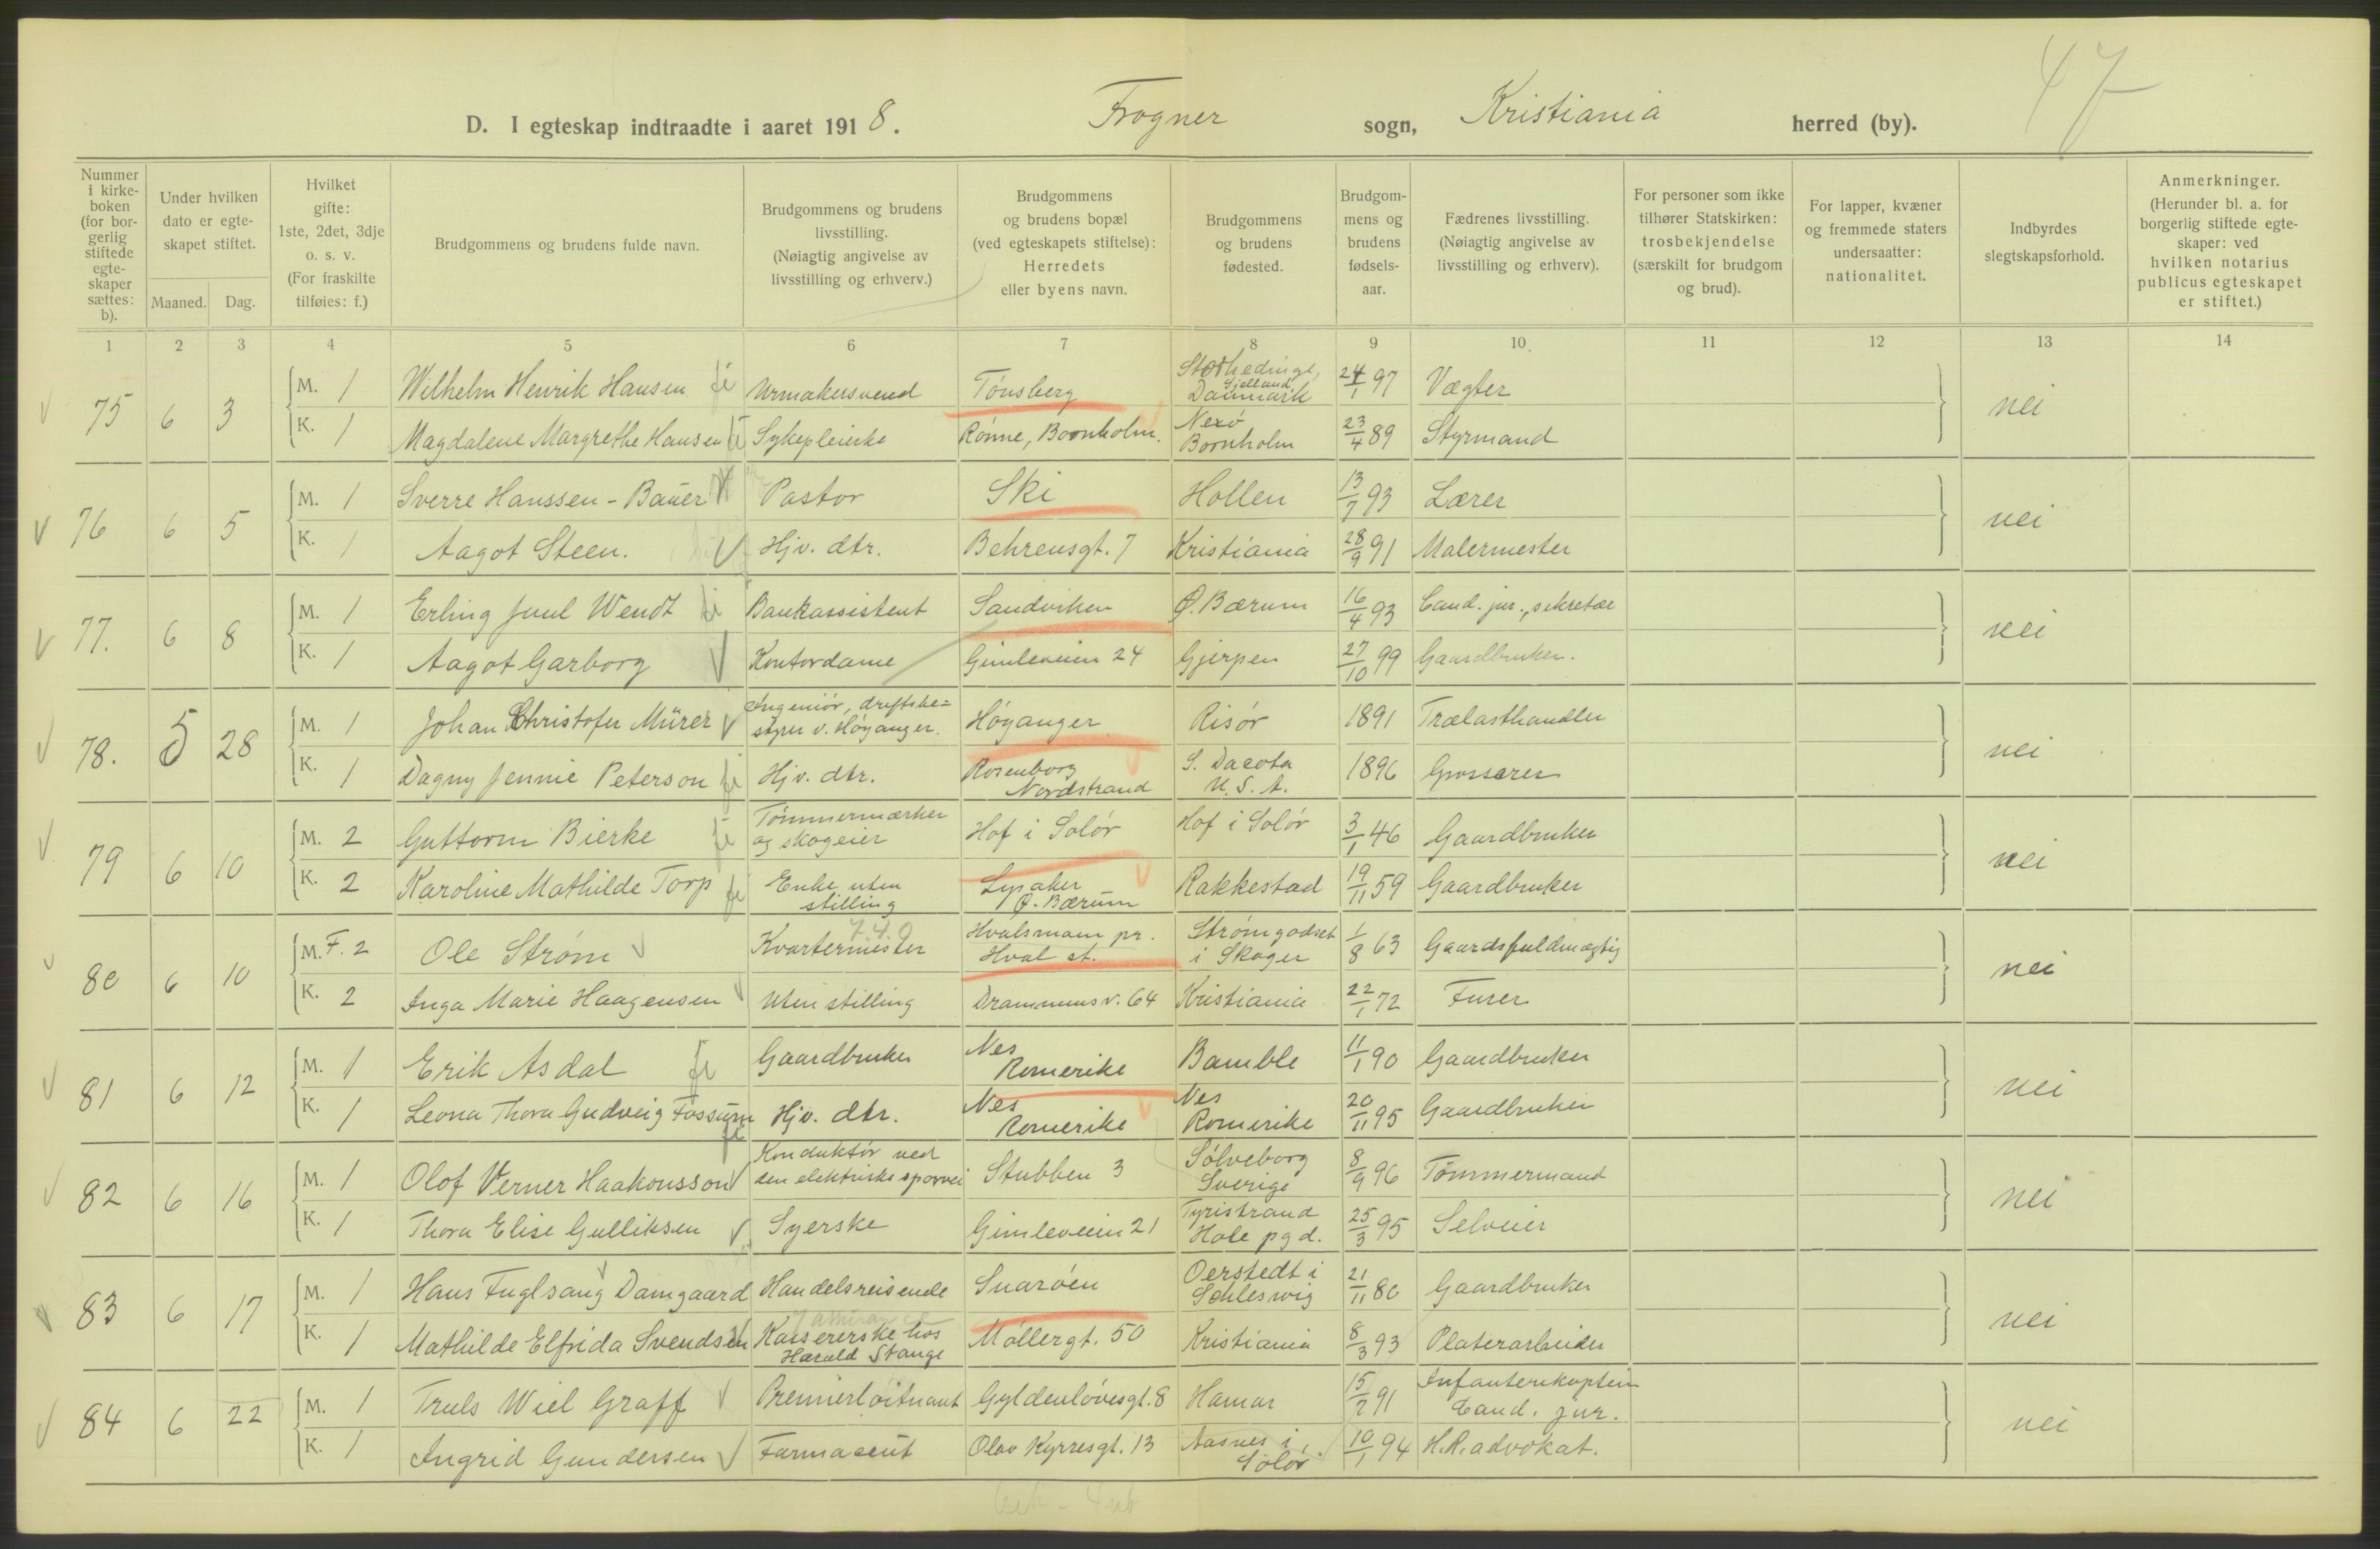 47
D. I egteskap indtraadte i aaret 1918. Frogner sogn, Kristiania herred (by).
Nummer i kirke-boken (for bor-gerlig stiftede egte-skaper sættes: b).
Under hvilken dato er egte-skapet stiftet.
Maaned. Dag.
Hvilket gifte: 1ste, 2det, 3dje o. s. v. (For fraskilte tilføies: f.)
Brudgommens og brudens fulde navn.
Brudgommens og brudens livsstilling. (Nøiagtig angivelse av livsstilling og erhverv.)
Brudgommens og brudens bopæl (ved egteskapets stiftelse): Herredets eller byens navn.
Brudgommens og brudens fødested.
Brudgom-mens og brudens fødsels-aar.
Fædrenes livsstilling. (Nøiagtig angivelse av livsstilling og erhverv).
For personer som ikke tilhører Statskirken: trosbekjendelse (særskilt for brudgom og brud).
For lapper, kvæner og fremmede staters undersaatter: nationalitet.
Indbyrdes slegtskapsforhold.
Anmerkninger. (Herunder bl. a. for borgerlig stiftede egte-skaper: ved hvilken notarius publicus egteskapet er stiftet.)
1 2 3 4 5 6 7 8 9 10 11 12 13 14
75 6 3 M. 1 Wilhelm Henrik Hansen Urmakersvend Tønsberg Storhedinge, Sjelland, Danmark 24/1 97 Vægter nei
K. 1 Magdalene Margrethe Hansen Sykepleierske Rønne, Bornholm. Nexø Bornholm 23/4 89 Styrmand
76 6 5 M. 1 Sverre Hanssen-Bauer Pastor Ski Hollen 13/7 93 Lærer nei
K. 1 Aagot Steen. Hjv. dtr. Behrensgt. 7 Kristiania 28/9 91 Malermester
77. 6 8 M. 1 Erling Juul Wendt Bankassistent Sandviken Ø. Bærum 16/4 93 Cand. jur., sekretær nei
K. 1 Aagot Garborg Kontordame Gimleveien 24 Gjerpen 27/10 99 Gaardbruker.
78. 5 28 M. 1 Johan Christofer Mürer Ingeniør, driftsbe=styrer v. Høyanger. Høyanger Risør 1891 Trælasthandler nei
K. 1 Dagny Jennie Peterson Hjv. dtr. Rosenborg Nordstrand S. Dacota U. S. A. 1896 Grosserer
79 6 10 M. 2 Guttorm Bierke Tømmermærker og skogeier Hof i Solør Hof i Solør 3/1 46 Gaardbruker nei
K. 2 Karoline Mathilde Torp Enke uten stilling Lysaker Ø. Bærum Rakkestad 19/11 59 Gaardbruker
80 6 10 M. F. 2 Ole Strøm Kvartermester Hvalsmoen pr. Hval st. Strømgodset i Skoger 1/8 63 Gaardsfuldmægtig nei
K. 2 Inga Marie Haagensen Uten stilling Drammensv. 64 Kristiania 22/1 72 Furer
81 6 12 M. 1 Erik Asdal Gaardbruker Nes Romerike Bamble 11/1 90 Gaardbruker nei
K. 1 Leona Thora Gudveig Fossum Hjv. dtr. Nes Romerike Nes Romerike 20/11 95 Gaardbruker
82 6 16 M. 1 Olof Verner Haakonsson Konduktør ved den elektriske sporvei Stubben 3 Sølveborg Sverige 8/9 96 Tømmermand nei
K. 1 Thora Elise Gulliksen Syerske Gimleveien 21 Tyristrand Hole pgd. 25/3 95 Selveier
83 6 17 M. 1 Hans Fuglsang Damgaard Handelsreisende Snarøen Oerstedt i Schleswig 21/11 86 Gaardbruker nei
K. 1 Mathilde Elfrida Svendsen Kassererske hos Harald Stange Møllergt. 50 Kristiania 8/3 93 Platerarbeider
84 6 22 M. 1 Truls Wiel Graff Premierløitnant Gyldenløvesgt. 8 Hamar 15/7 91 Infanterikaptein Cand. jur. nei
K. 1 Ingrid Gundersen Farmaceut Olav Kyrresgt. 13 Aasnes i Solør 10/1 94 H.R.advokat.